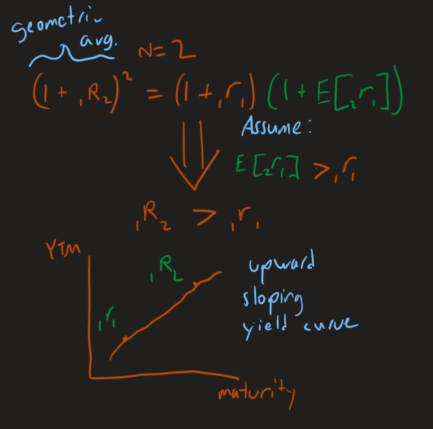 geometric
avg.
N=2
(1 + ₁R₂)² = (1+₁r₁) (1+E[₂r₁])
Assume:
E[₂r₁] > ₁r₁
₁R₂ > ₁r₁
YTM
₁R₂
₁r₁
upward
sloping
yield curve
maturity